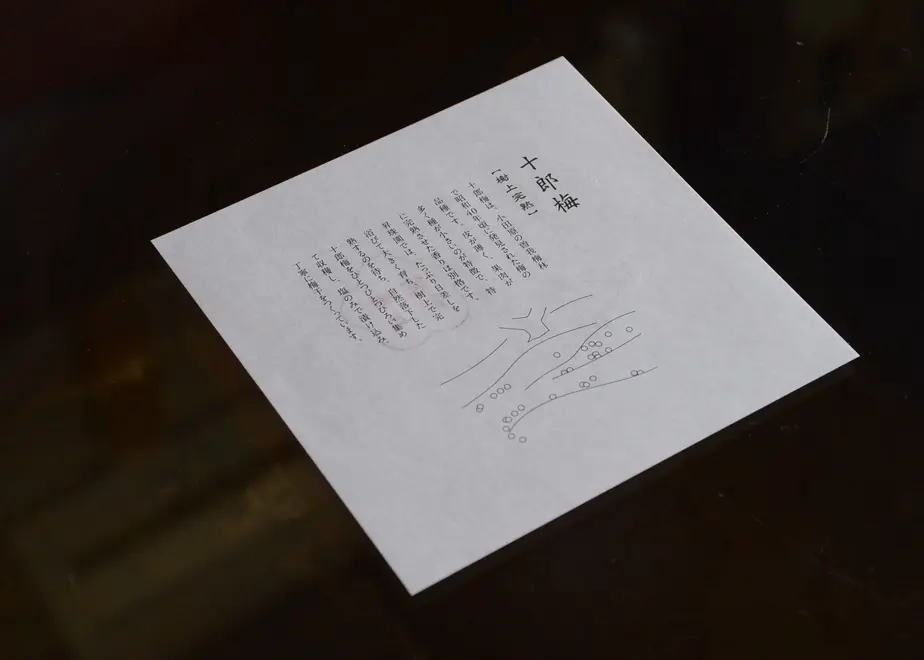 十郎梅
【樹上完熟】
十郎梅は、小田原の曽我梅林
で昭和40年頃に発見された梅の
品種です。皮が薄く、果肉が
多く種が小さいのが特徴で、特
に完熟させた香りは別格です。
昇珠園では、たっぷり日差しを
浴びて大きく育ち、樹上で完
熟するのを待ち、自然落下した
十郎梅をひとつひとつひろい集め
て収穫し、塩のみで漬け込み、
丁寧に梅干をつくっています。